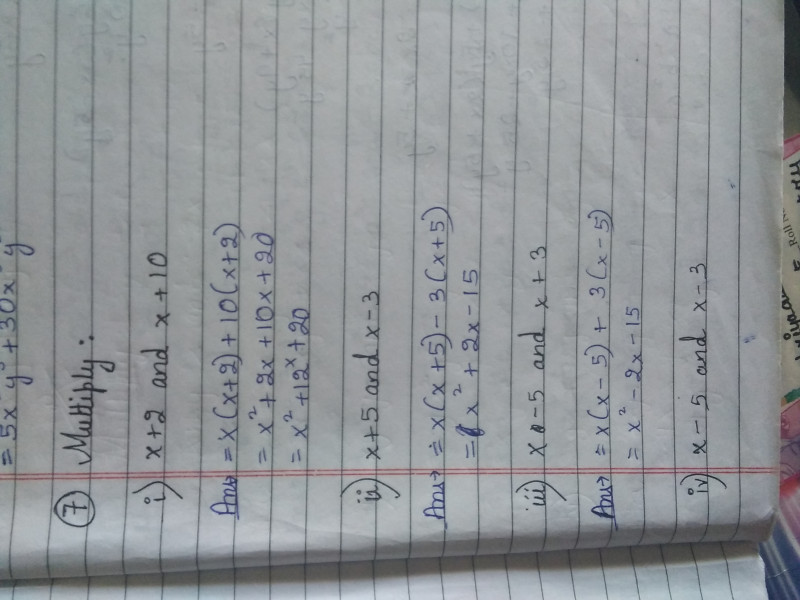 = 5x y + 30x y
⑦ Multiply:
i) x+2 and x+10
Ans→ = x(x+2)+10(x+2)
= x²+2x+10x+20
= x²+12x+20
ii) x+5 and x-3
Ans→ = x(x+5)-3(x+5)
= x²+2x-15
iii) x-5 and x+3
Ans→ = x(x-5)+3(x-5)
= x²-2x-15
iv) x-5 and x-3
Roll